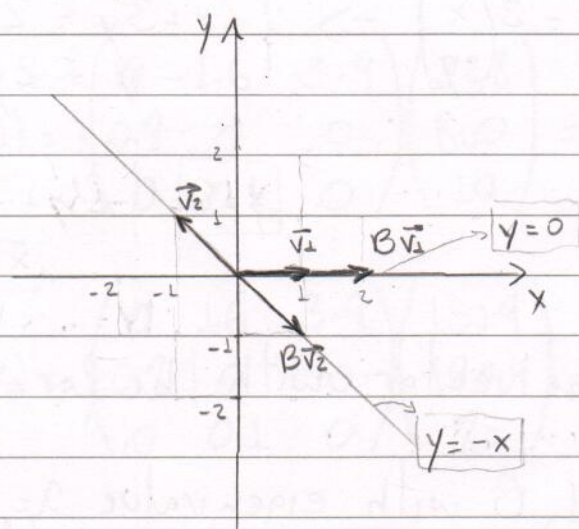 y
2
v⃗2
1
v⃗1
Bv⃗1
y=0
-2
-1
1
2
x
-1
Bv⃗2
-2
y=-x